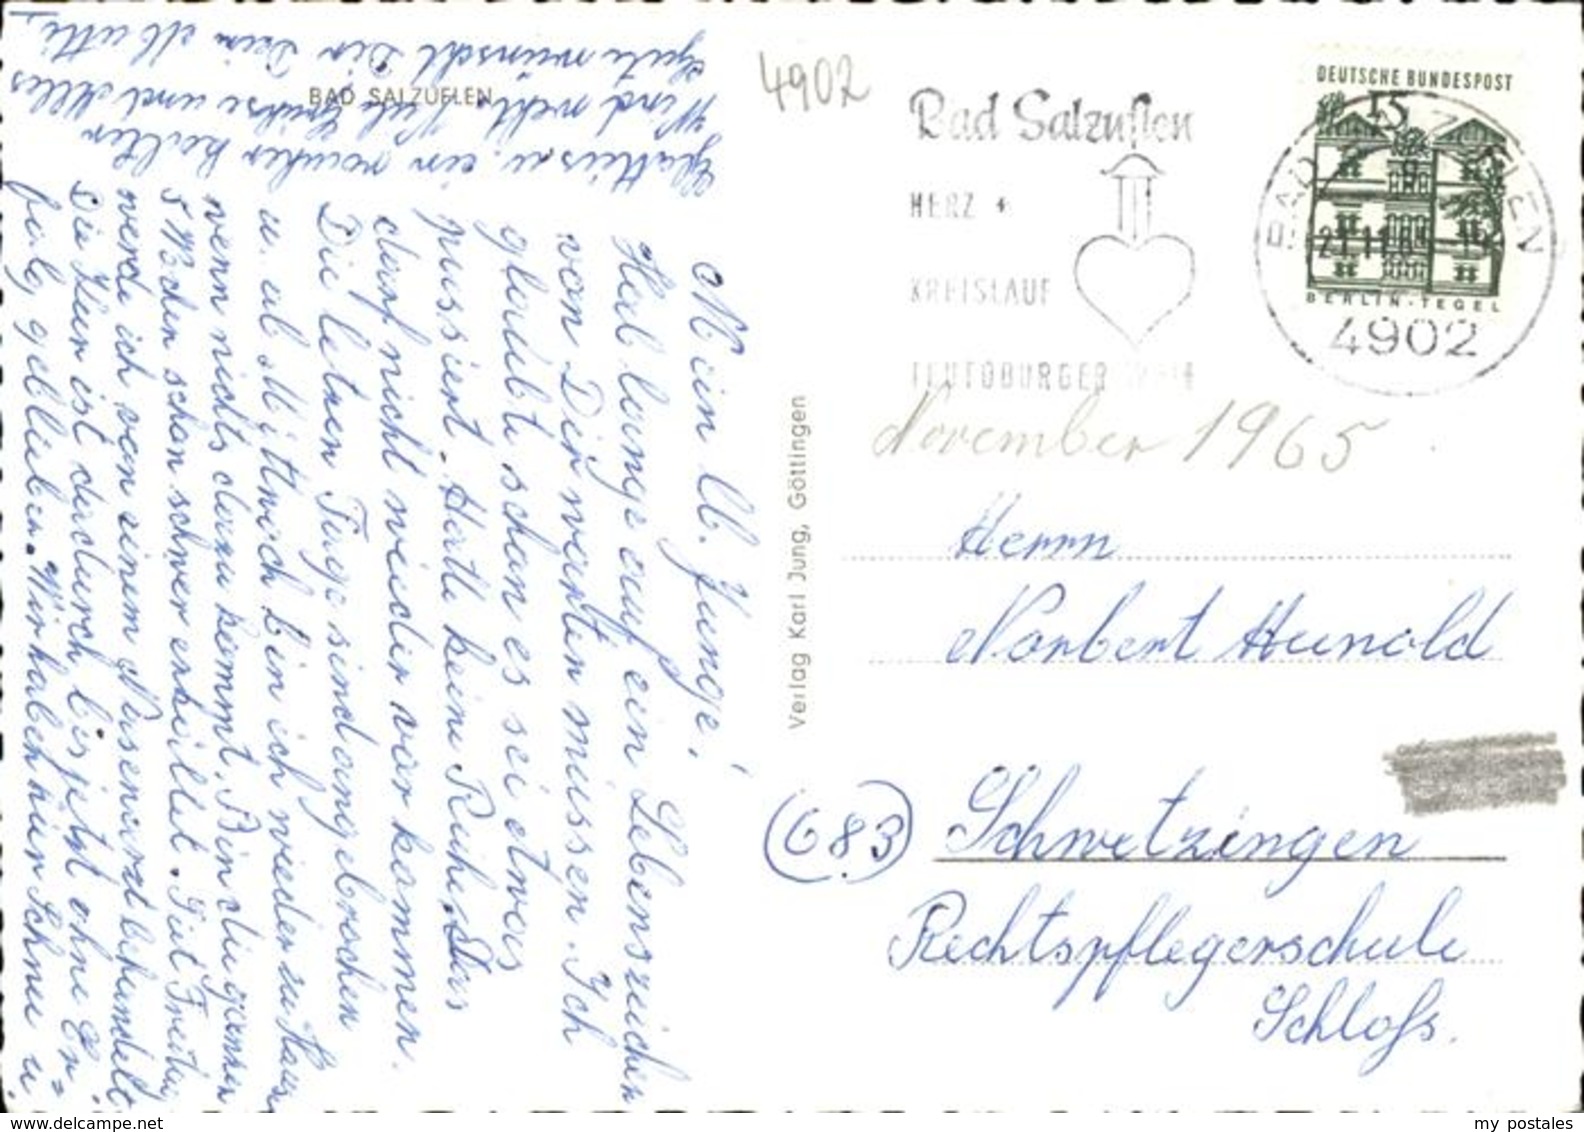 BAD SALZUFLEN
Mein lb. Junge!
Hab lange auf ein Lebenszeichen
von Dir warten müssen. Ich
glaubte schon es sei etwas
passiert. Hatte keine Ruhe. Das
darf nicht wieder vorkommen.
Die letzen Tage sind angebrochen
u. ab Mittwoch bin ich wieder zu Hause
wenn nichts dazu kommt. Bin die ganzen
5 Wochen schon schwer erkältet. Seit Freitag
werde ich von einem Nasenarzt behandelt.
Die Kur ist dadurch bis jetzt ohne Er=
folg geblieben. Wir haben hier Schnee u.
Glatteis u. ein rauher kalter
Wind weht. Viele Grüße und alles
Gute wünscht Dir Dein Mutti
Verlag Karl Jung, Göttingen
4902
Bad Salzuflen
HERZ +
KREISLAUF
TEUTOBURGER
DEUTSCHE BUNDESPOST
15
BERLIN-TEGEL
4902
November 1965
Herrn
Norbert Hunold
(683) Schwetzingen
Rechtspflegerschule
Schloß.
www.my-postales.com
my postales